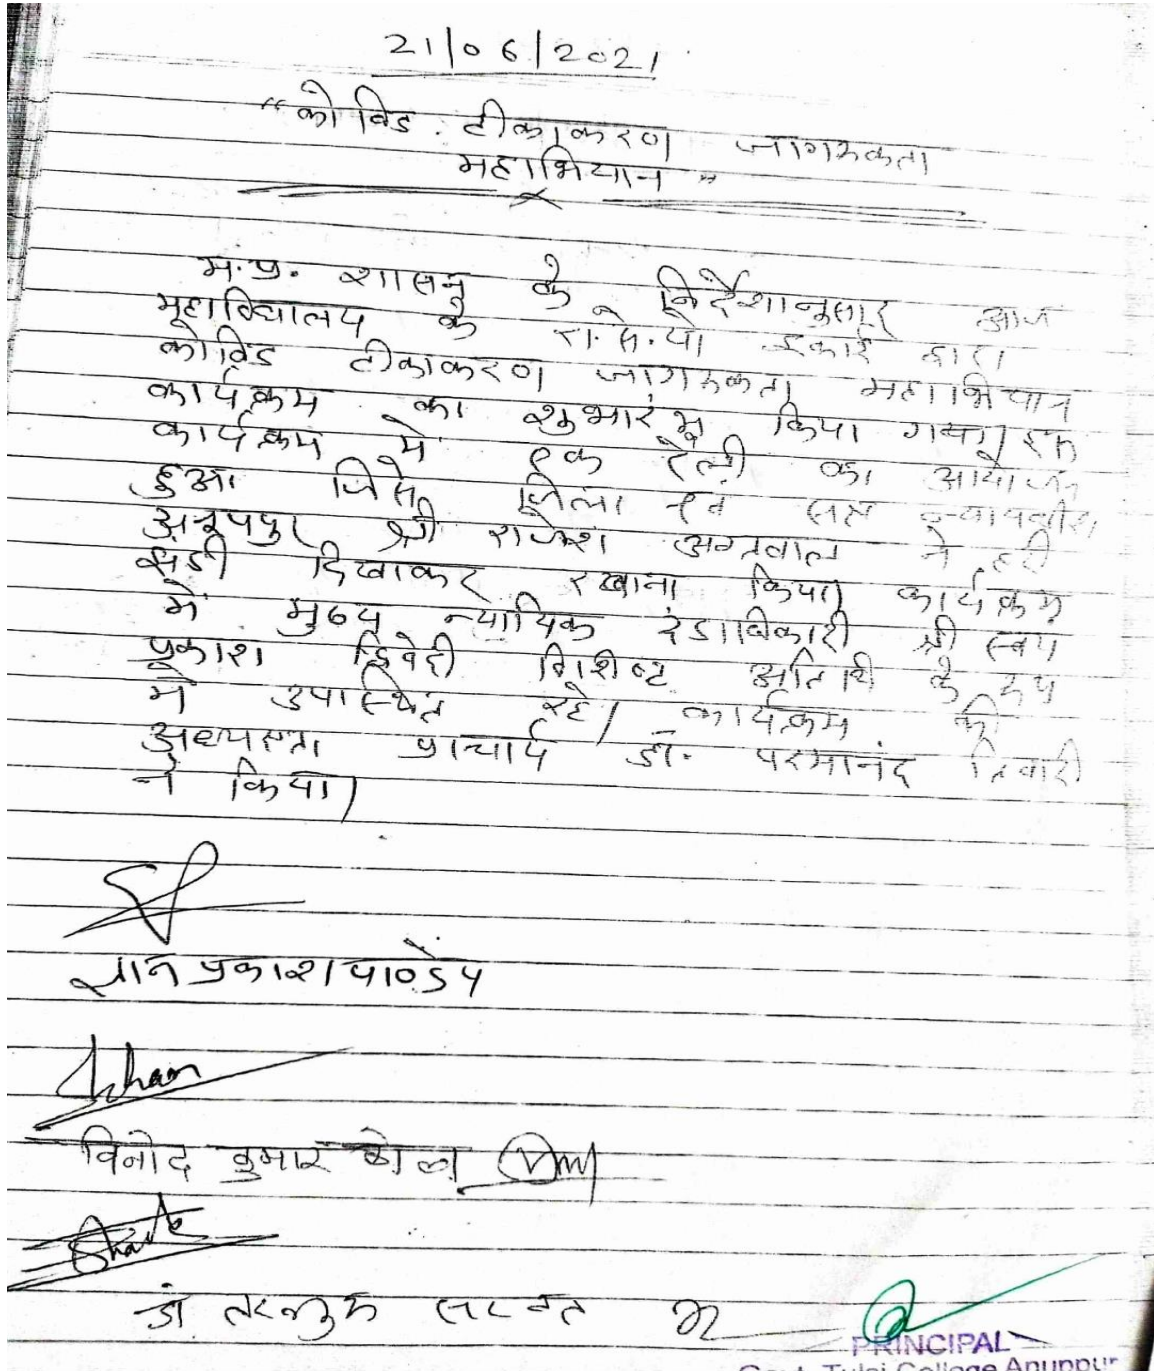 21/06/2021
"कोविड टीकाकरण जागरूकता
महाभियान"
म.प्र. शासन के निर्देशानुसार आज
महाविद्यालय के रा.से.यो इकाई द्वारा
कोविड टीकाकरण जागरूकता महाभियान
कार्यक्रम का शुभारंभ किया गया। इस
कार्यक्रम में एक रैली का आयोजन
हुआ जिसे जिला एवं सत्र न्यायाधीश
अनूपपुर श्री राजेश अग्रवाल ने हरी
झंडी दिखाकर रवाना किया। कार्यक्रम
में मुख्य न्यायिक दंडाधिकारी श्री स्वयं
प्रकाश द्विवेदी विशिष्ट अतिथि के रूप
में उपस्थित रहे। कार्यक्रम की
अध्यक्षता प्राचार्य डॉ. परमानंद तिवारी
ने किया।
ज्ञान प्रकाश पाण्डेय
विनोद कुमार कोल
डॉ तरन्नुम सरवत
PRINCIPAL
Govt. Tulsi College Anuppur